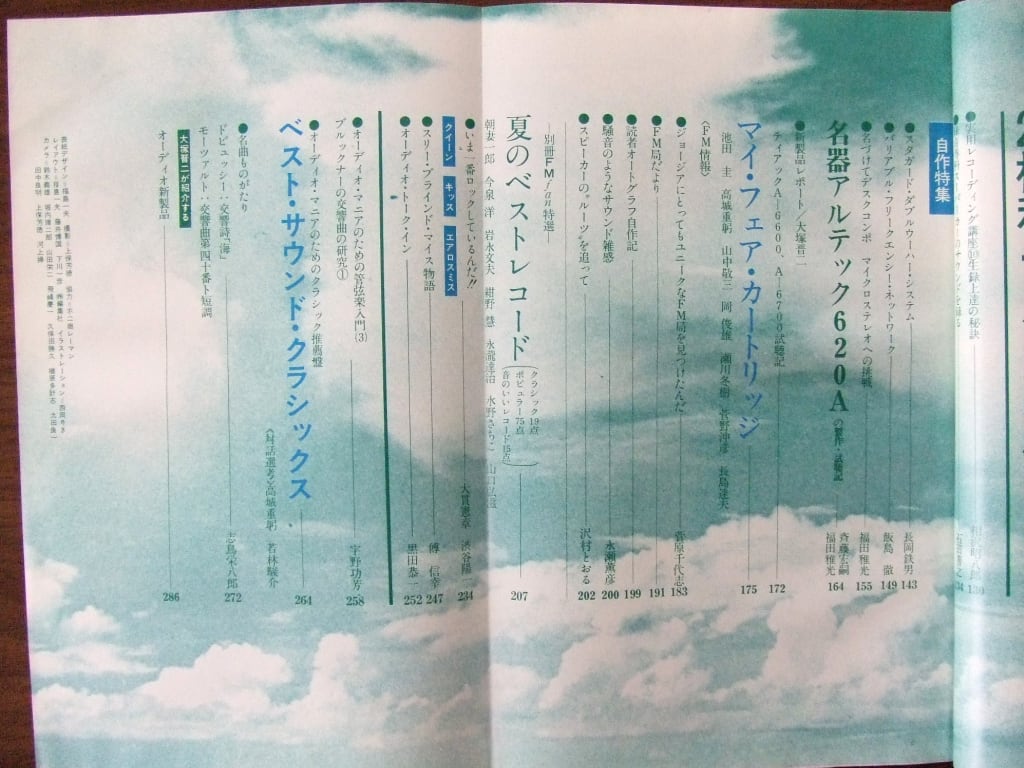 実用レコーディング講座⑩生録上達の秘訣
130
134
自作特集
●マタガード・ダブルウーハー・システム
長岡鉄男 143
●バリアブル・フリークエンシー・ネットワーク
飯島 徹 149
●名づけてデスクコンポ マイクロステレオへの挑戦
福田雅光 155
名器アルテック620Aの製作・試聴記
斉藤宏嗣
福田雅光 164
●新製品レポート/大塚晋二
ティアックA—6600、A—6700試聴記
172
マイ・フェア・カートリッジ
175
池田 圭 高城重躬 山中敬三 岡 俊雄 瀬川冬樹 菅野沖彦 長島達夫
〈FM情報〉
●ジョージアにとってもユニークなFM局を見つけたんだ
菅原千代志 183
●FM局だより
191
●読者オートグラフ自作記
199
●騒音のようなサウンド雑感
永瀬薫彦 200
●スピーカーの“ルーツ”を追って
沢村とおる 202
—別冊FMfan特選—
夏のベストレコード
クラシック19点
ポピュラー75点
音のいいレコード15点
207
朝妻一郎 今泉 洋 岩永文夫 紺野 慧
●いま一番ロックしているんだ!!
クイーン
キッス
エアロスミス
大貫憲章 渋谷陽一 234
●スリー・ブラインド・マイス物語
傅 信幸 247
●オーディオ・トーク・イン
黒田恭一 252
●オーディオ・マニアのための管弦楽入門(3)
ブルックナーの交響曲の研究①
宇野功芳 258
●オーディオ・マニアのためのクラシック推薦盤
ベスト・サウンド・クラシックス
264
〈対話選考〉高城重躬 若林駿介
●名曲ものがたり
ドビュッシー:交響詩「海」
モーツァルト:交響曲第四十番ト短調
志鳥栄八郎 272
大塚晋二が紹介する
オーディオ新製品
286